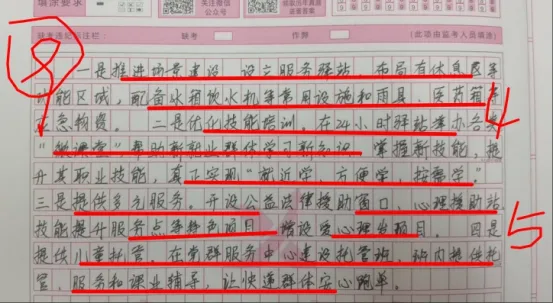 填涂要求
关注微信
公众号
缺考违纪标注栏: 缺考 作弊 (此项由监考人员填涂)
9
一是推进场景建设。设立服务驿站,布局有休息区等
功能区域,配备冰箱饮水机等常用设施和雨具、医药箱等
应急物资。二是优化技能培训。在24小时驿站举办各类
4
“微课堂”帮助新就业群体学习新知识 掌握新技能,提
升其职业技能,真正实现“就近学、方便学、按需学。”
三是提供多元服务。开设公益法律援助窗口、心理援助站
技能提升服务点等特色项目 增设爱心理发项目。四是
5
提供儿童托管。在党群服务中心建设托管班,班内提供托
管、服务和课业辅导,让快递群体安心跑单。